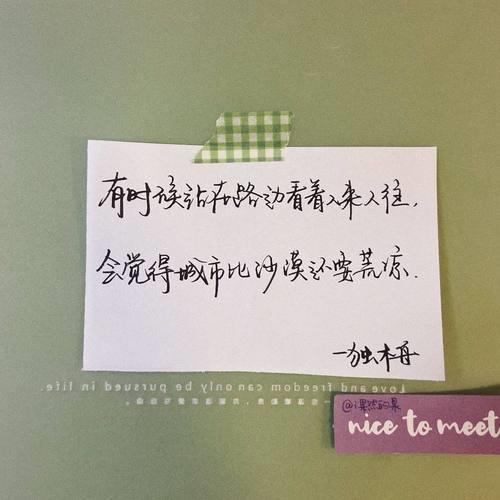 有时候站在路边看着人来人往，
会觉得城市比沙漠还要荒凉.
—独木舟
Love and freedom can only be pursued in life.
@i果然的果
nice to meet